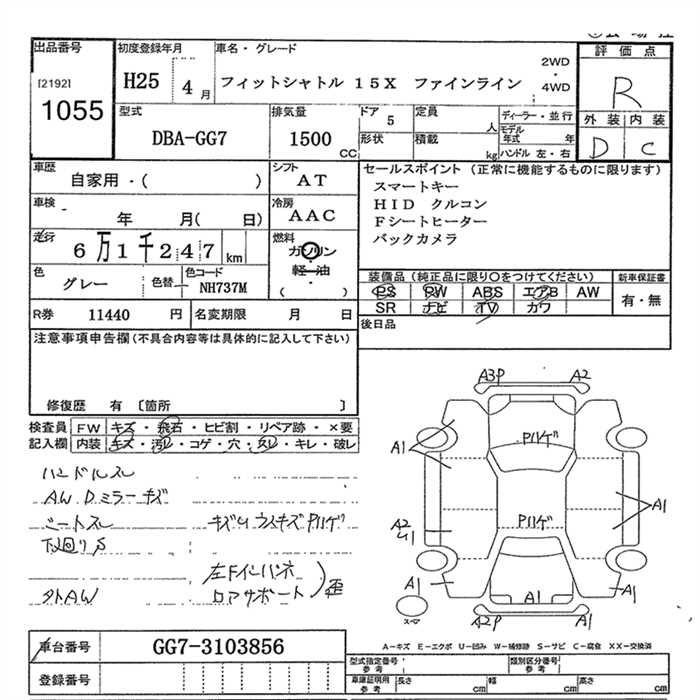 出品番号
[2192]
1055
初度登録年月
H25 4月
車名・グレード
フィットシャトル 15X ファインライン
2WD
・
4WD
評価点
R
外装 内装
D C
型式
DBA-GG7
排気量
1500 CC
ドア 5
形状
定員 人
積載 kg
ディーラー・並行
モデル年式 年
ハンドル 左・右
車歴
自家用・( )
シフト
AT
セールスポイント (正常に機能するものに限ります)
スマートキー
HID クルコン
Fシートヒーター
バックカメラ
車検 年 月( 日)
冷房
AAC
走行
6万1千247 km
燃料
ガソリン
軽・油
・
( )
色
グレー
色替
色コード
NH737M
装備品 (純正品に限り○をつけてください)
PS PW ABS エアB AW
SR ナビ TV カワ
新車保証書
有・無
R券 11440 円
名変期限 月 日
後日品
注意事項申告欄 (不具合内容等は具体的に記入して下さい)
修復歴 有 〔箇所 〕
検査員 FW キズ・飛石・ヒビ割・リペア跡・×要
記入欄 内装 キズ・汚レ・コゲ・穴・スレ・キレ・破レ
ハンドルスレ
AW Dミラーキズ
シートスレ
下廻りS
外AW
A3P A2
A1
Pハゲ
Pハゲ
A1
A2
U1
A1
A1
A1
A2P
A1
スペア
A-キズ E-エクボ U-凹み W-補修跡 S-サビ C-腐食 XX-交換済
車台番号 GG7-3103856
登録番号
型式指定番号 参考
類別区分番号 参考
車庫証明用 参考
長さ cm
幅 cm
高さ cm